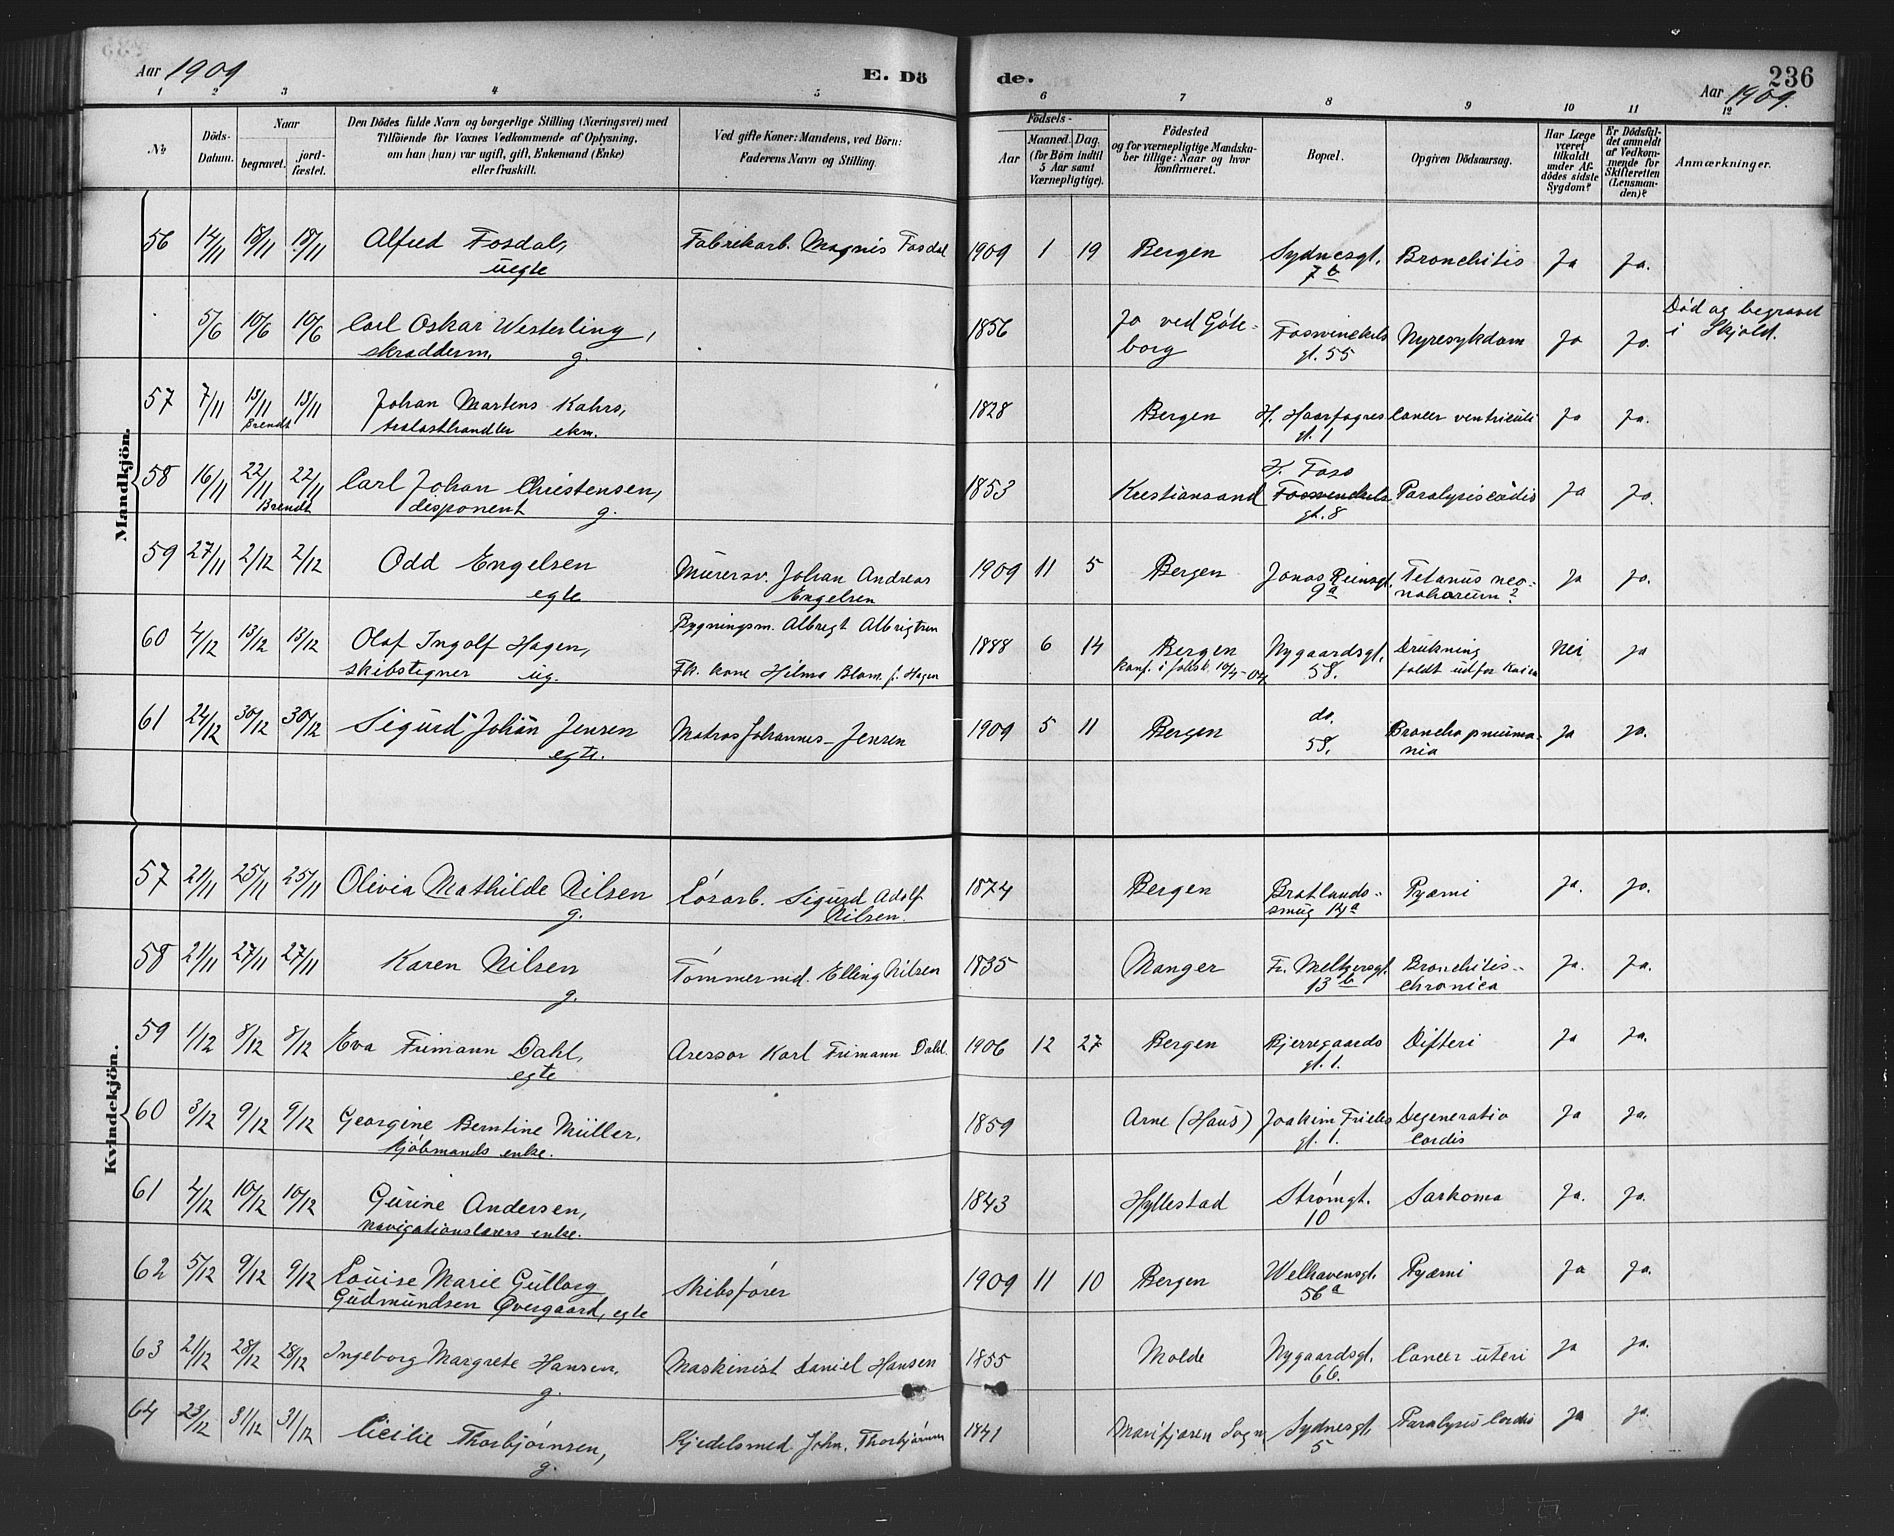 Aar 1909
E. Dö
de.
236
Aar 1909.
1 2 3 4 5 6 7 8 9 10 11 12
No
Döds-Datum.
Naar
begravet.
jord-fæstet.
Den Dödes fulde Navn og borgerlige Stilling (Næringsvei) med
Tilföiende for Voxnes Vedkommende af Oplysning,
om han (hun) var ugift, gift, Enkemand (Enke)
eller fraskilt.
Ved gifte Koner: Mandens, ved Börn:
Faderens Navn og Stilling.
Födsels-
Aar
Maaned. Dag.
(for Börn indtil
5 Aar samt
Værnepligtige).
Födested
og for værnepligtige Mandska-
ber tillige: Naar og hvor
konfirmeret.
Bopæl.
Opgiven Dödsaarsag.
Har Læge
været
tilkaldt
under Af-
dödes sidste
Sygdom?
Er Dödsfal-
det anmeldt
af Vedkom-
mende for
Skifteretten
(Lensman-
den)?
Anmærkninger.
Mandkjön.
56 14/11 18/11 18/11 Alfred Fosdal, Fabrikarb. Magnus Fosdal 1909 1 19 Bergen Sydnesgt. Bronchitis Ja Ja.
uegte 7b
5/6 10/6 10/6 Carl Oskar Westerling, 1856 Jo ved Göte- Fosswinckels Nyresykdom Ja Ja. Död og begravet
skrædderm. g. borg gt. 55 i Skjold.
57 7/11 13/11 13/11 Johan Martens Kahrs, 1828 Bergen H. Haarfagres Cancer ventriculi Ja Ja.
Brendt trælasthandler ekm. gt. 1
58 16/11 22/11 22/11 Carl Johan Christensen, 1853 Kristiansand K. Foss Fosswinckels Paralysis cordis Ja Ja.
Brendt disponent g. gt. 8
59 27/11 2/12 2/12 Odd Engelsen Murersv. Johan Andreas 1909 11 5 Bergen Jonas Reinsgt. Tetanus neo-
egte Engelsen 9a natorum? Ja Ja.
60 4/12 13/12 13/12 Olaf Ingolf Hagen, Bygningsm. Albregt Albrigtsen 1888 6 14 Bergen Nygaardsgt. Drukning Nei ja
skibstegner ug. Frk. kone Hilma Blom f. Hagen konf. i Johsk. 10/4-04 58. faldt udfor Kaien
61 24/12 30/12 30/12 Sigurd Johan Jensen Matros Johannes Jensen 1909 5 11 Bergen do. Bronchopneumo- Ja Ja.
egte. 58. nia
Kvindekjön.
57 21/11 25/11 25/11 Olivia Mathilde Nilsen Løsarb. Sigurd Adolf 1874 Bergen Bratlands- Pyæmi Ja. Ja.
g. Nilsen. smug 14a
58 21/11 27/11 27/11 Karen Nilsen Tømmermd. Elling Nilsen 1835 Manger Fr. Meltzersgt. Bronchitis Ja. Ja.
g. 13b chronica
59 1/12 8/12 8/12 Eva Frimann Dahl, Assessor Karl Frimann Dahl. 1906 12 27 Bergen Bjerregaards Difteri Ja Ja.
egte gt. 1.
60 3/12 9/12 9/12 Georgine Berntine Müller, 1859 Arne (Haus) Joakim Frieles Degeneratio Ja Ja.
kjøbmands enke. gt. 1. Cordis
61 4/12 10/12 10/12 Gurine Andersen, 1843 Hyllestad Strømgt. Sarkoma Ja. Ja.
navigationslærers enke. 10
62 5/12 9/12 9/12 Louise Marie Gulborg Skibsfører 1909 11 10 Bergen Welhavensgt. Pyæmi Ja Ja.
Gudmundsen Øvergaard, egte 56a
63 21/12 28/12 28/12 Ingeborg Margrete Hansen, Maskinist Daniel Hansen 1855 Molde Nygaardsgt. Cancer uteri Ja Ja.
g. 66.
64 23/12 31/12 31/12 Cicilie Thorbjørnsen, Kjedelsmed John. Thorbjørnsen 1841 Marifjæren Sogn Sydnesgt. Paralysis Cordis Ja Ja.
g. 5